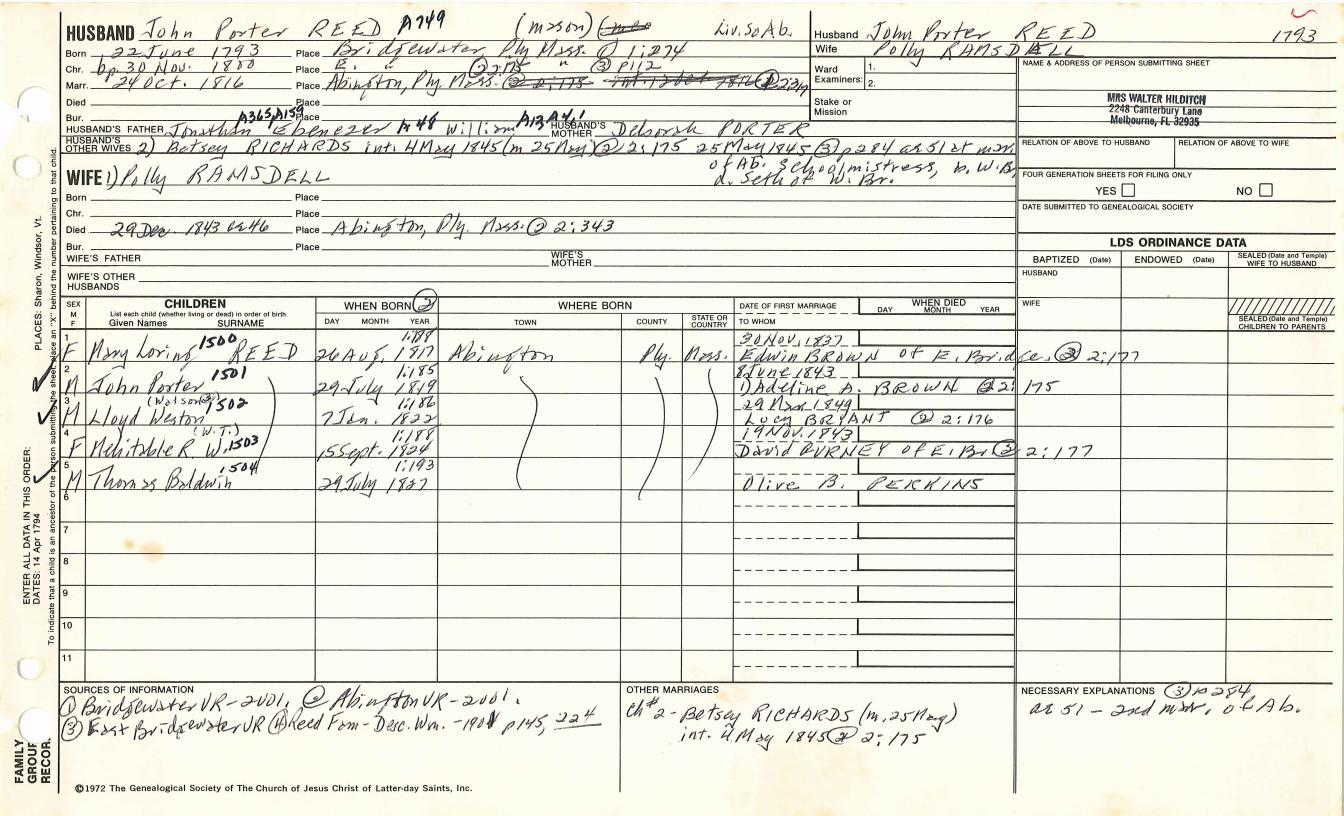 HUSBAND John Porter REED A749 (mason) Liv. So Ab.
Husband John Porter REED 1793
Born 22 June 1793 Place Bridgewater, Ply Mass. ① 1:274
Wife Polly RAMSDELL
Chr. bp. 30 Nov. 1800 Place E. " " ③ p112
Marr. 24 Oct. 1816 Place Abington, Ply. Mass.
Died Place
Bur. Place
Ward Examiners: 1. 2.
Stake or Mission
NAME & ADDRESS OF PERSON SUBMITTING SHEET
MRS WALTER HILDITCH
2248 Canterbury Lane
Melbourne, FL 32935
A365, A159
HUSBAND'S FATHER Jonathan Ebenezer A48 William A13 A4, 1 HUSBAND'S MOTHER Deborah PORTER
HUSBAND'S OTHER WIVES 2) Betsey RICHARDS int. 4 May 1845 (m 25 May) ② 2:175 25 May 1845 ③ p284 ae 51 2t marr
of Ab. Schoolmistress, b. W.B.
d. Seth of W. Br.
RELATION OF ABOVE TO HUSBAND RELATION OF ABOVE TO WIFE
WIFE 1) Polly RAMSDELL
FOUR GENERATION SHEETS FOR FILING ONLY
YES NO
Born Place
Chr. Place
Died 29 Dec. 1843 ae 46 Place Abington, Ply. Mass. ② 2:343
Bur. Place
DATE SUBMITTED TO GENEALOGICAL SOCIETY
WIFE'S FATHER WIFE'S MOTHER
WIFE'S OTHER HUSBANDS
LDS ORDINANCE DATA
BAPTIZED (Date) ENDOWED (Date) SEALED (Date and Temple) WIFE TO HUSBAND
HUSBAND
WIFE
SEALED (Date and Temple) CHILDREN TO PARENTS
SEX M F CHILDREN
List each child (whether living or dead) in order of birth
Given Names SURNAME
WHEN BORN ② DAY MONTH YEAR
WHERE BORN TOWN COUNTY STATE OR COUNTRY
DATE OF FIRST MARRIAGE TO WHOM
WHEN DIED DAY MONTH YEAR
1 1500 1:188 30 Nov. 1837
F Mary Loring REED 26 Aug. 1817 Abington Ply. Mass. Edwin BROWN of E. Bridge. ② 2:177
2 1501 1:185 8 June 1843
M John Porter 29 July 1819 1) Adeline A. BROWN ② 2:175
3 (Watson ③) 1502 1:186 29 Mar 1849
M Lloyd Weston 7 Jan. 1822 Lucy BRYANT ② 2:176
4 (W.T.) 1503 1:188 19 Nov. 1843
F Mehitable R. W. 15 Sept. 1824 David BURNEY of E. Br ② 2:177
5 1504 1:193
M Thomas Baldwin 29 July 1827 Olive B. PERKINS
6
7
8
9
10
11
SOURCES OF INFORMATION
① Bridgewater VR-2001. ② Abington VR-2001.
③ East Bridgewater VR ④ Reed Fam-Desc. Wm. -1901 p145, 224
OTHER MARRIAGES
Ch #2 - Betsey RICHARDS (m. 25 May)
int. 4 May 1845 ② 2:175
NECESSARY EXPLANATIONS ③ p284
ae 51 - 2nd marr. of Ab.
©1972 The Genealogical Society of The Church of Jesus Christ of Latter-day Saints, Inc.
FAMILY GROUP RECOR.
ENTER ALL DATA IN THIS ORDER:
DATES: 14 Apr 1794
PLACES: Sharon, Windsor, Vt.
To indicate that a child is an ancestor of the person submitting the sheet, place an "X" behind the number pertaining to that child.